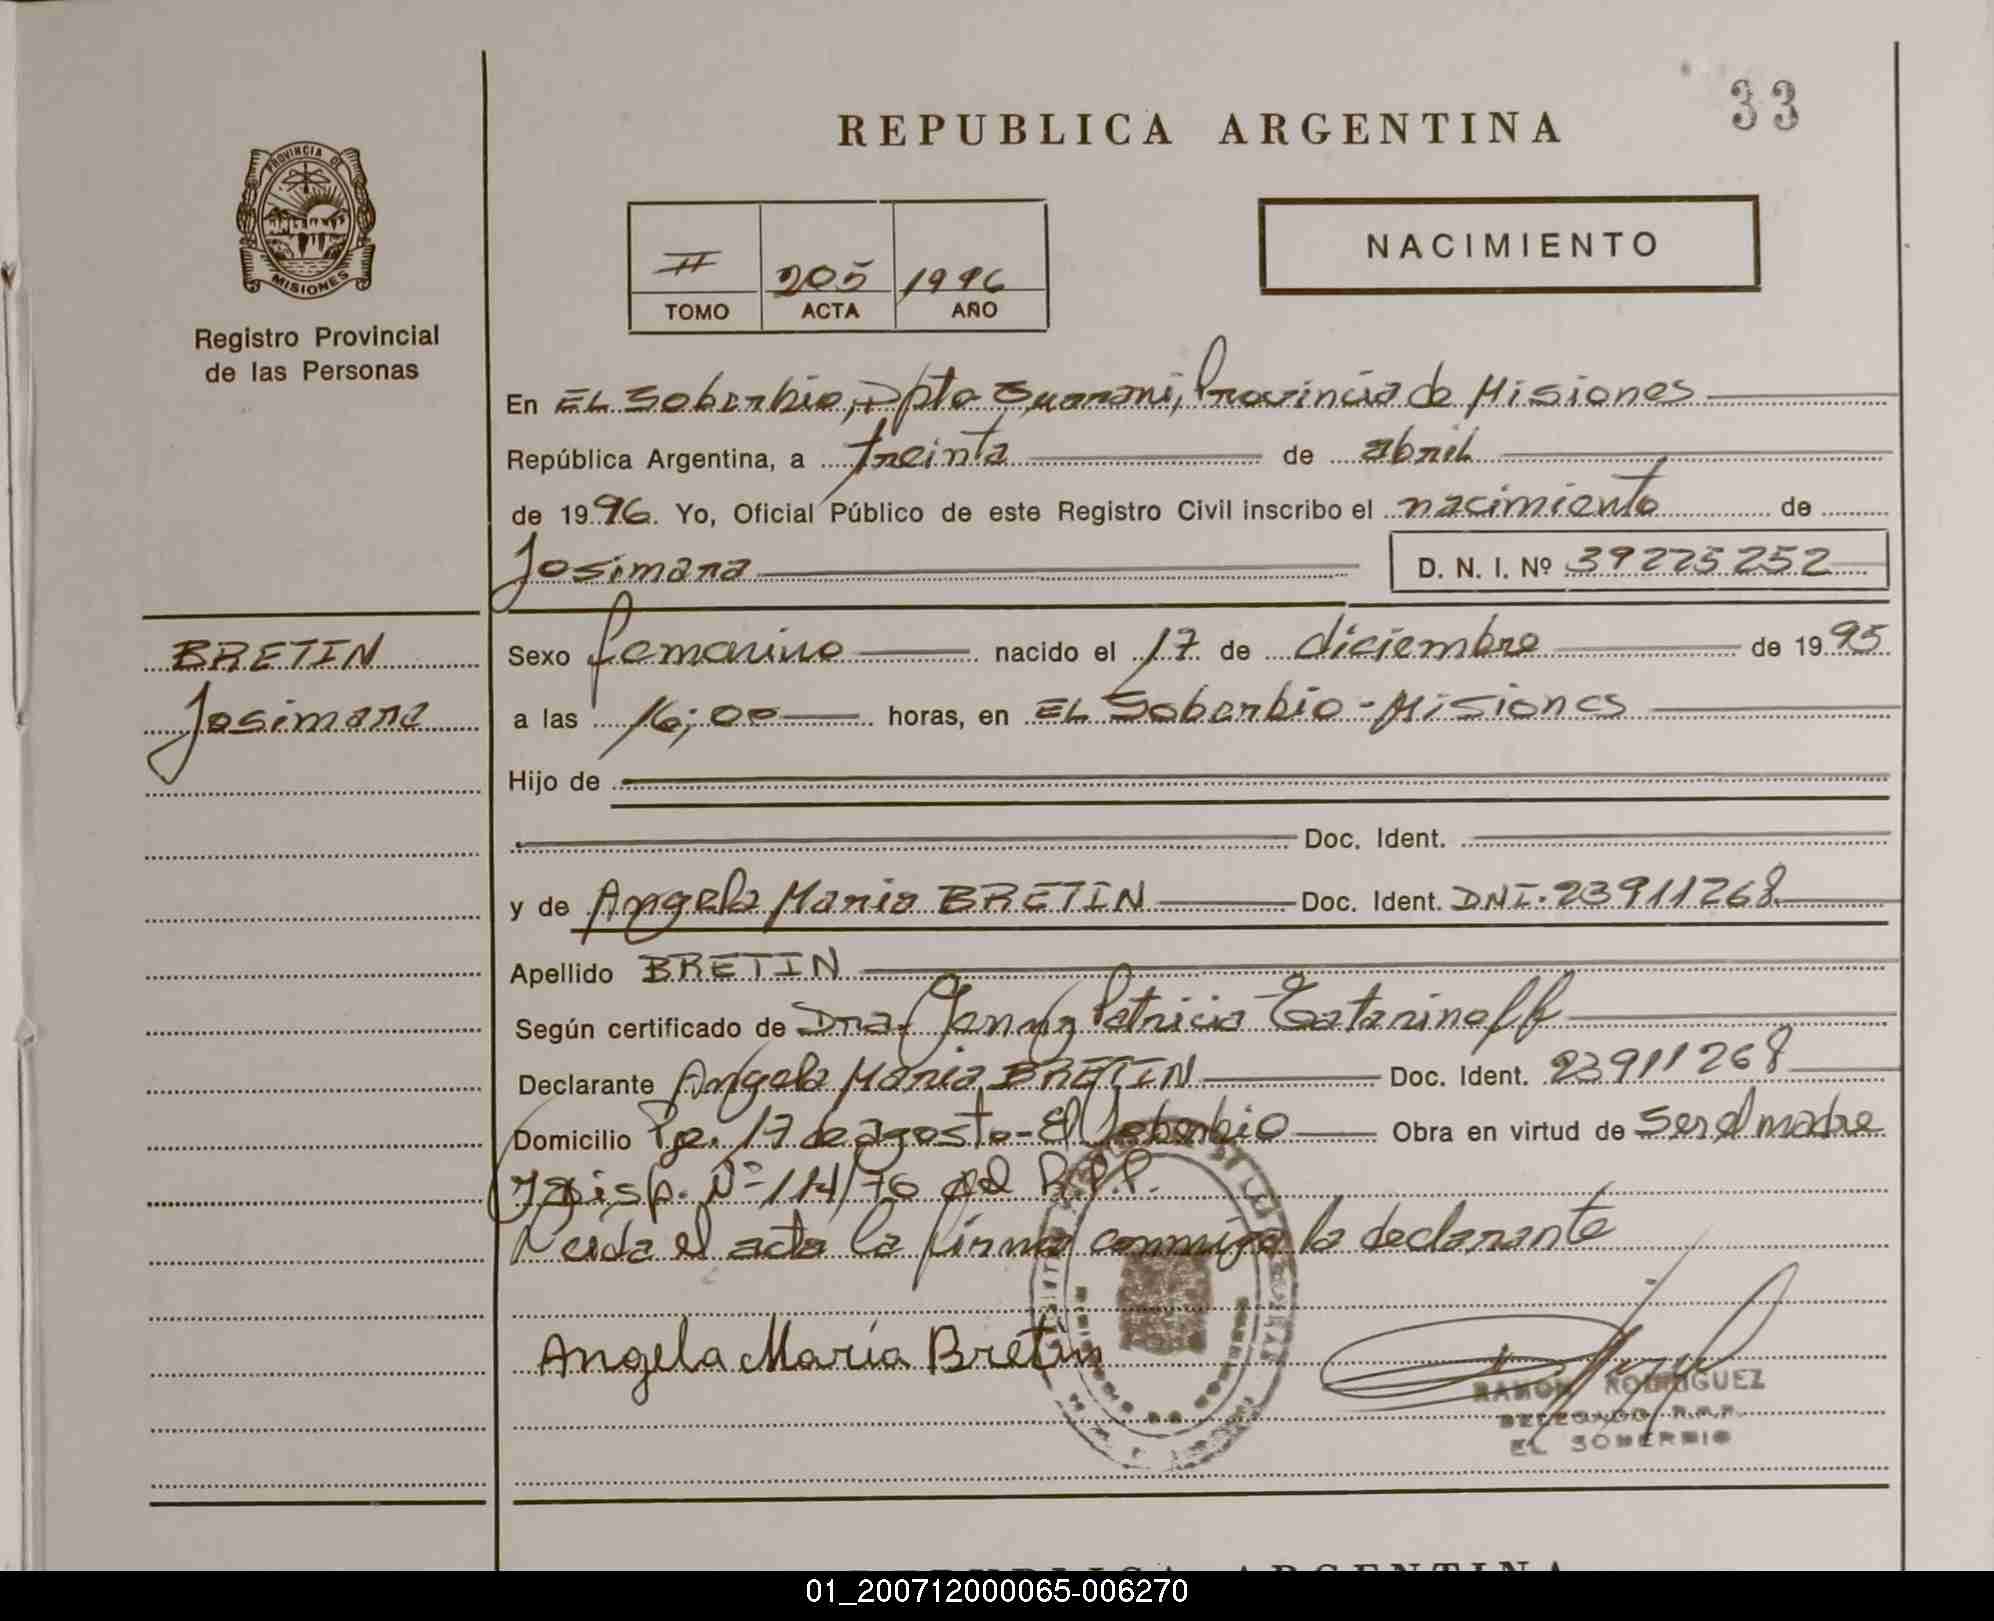 33
REPUBLICA ARGENTINA
PROVINCIA DE
MISIONES
Registro Provincial
de las Personas
II 205 1996
TOMO ACTA AÑO
NACIMIENTO
En EL Soberbio, Dpto Guarani, Provincia de Misiones
República Argentina, a treinta de abril
de 1996. Yo, Oficial Público de este Registro Civil inscribo el nacimiento de
Josimara D. N. I. Nº 39225252
BRETIN
Josimara
Sexo femenino nacido el 17 de diciembre de 1995
a las 16;00 horas, en EL Soberbio - Misiones
Hijo de
Doc. Ident.
y de Angela Maria BRETIN Doc. Ident. DNI. 23911268
Apellido BRETIN
Según certificado de Dra. Jenny Patricia Tatarinoff
Declarante Angela Maria BRETIN Doc. Ident. 23911268
Domicilio Pje. 17 de agosto - El Soberbio Obra en virtud de ser el madre
y Disp. Nº 114/70 del R.P.P.
Leida el acta la firma conmigo la declarante
Angela María Bretin
RAMON RODRIGUEZ
DELEGADO R.P.P.
EL SOBERBIO
01_200712000065-006270